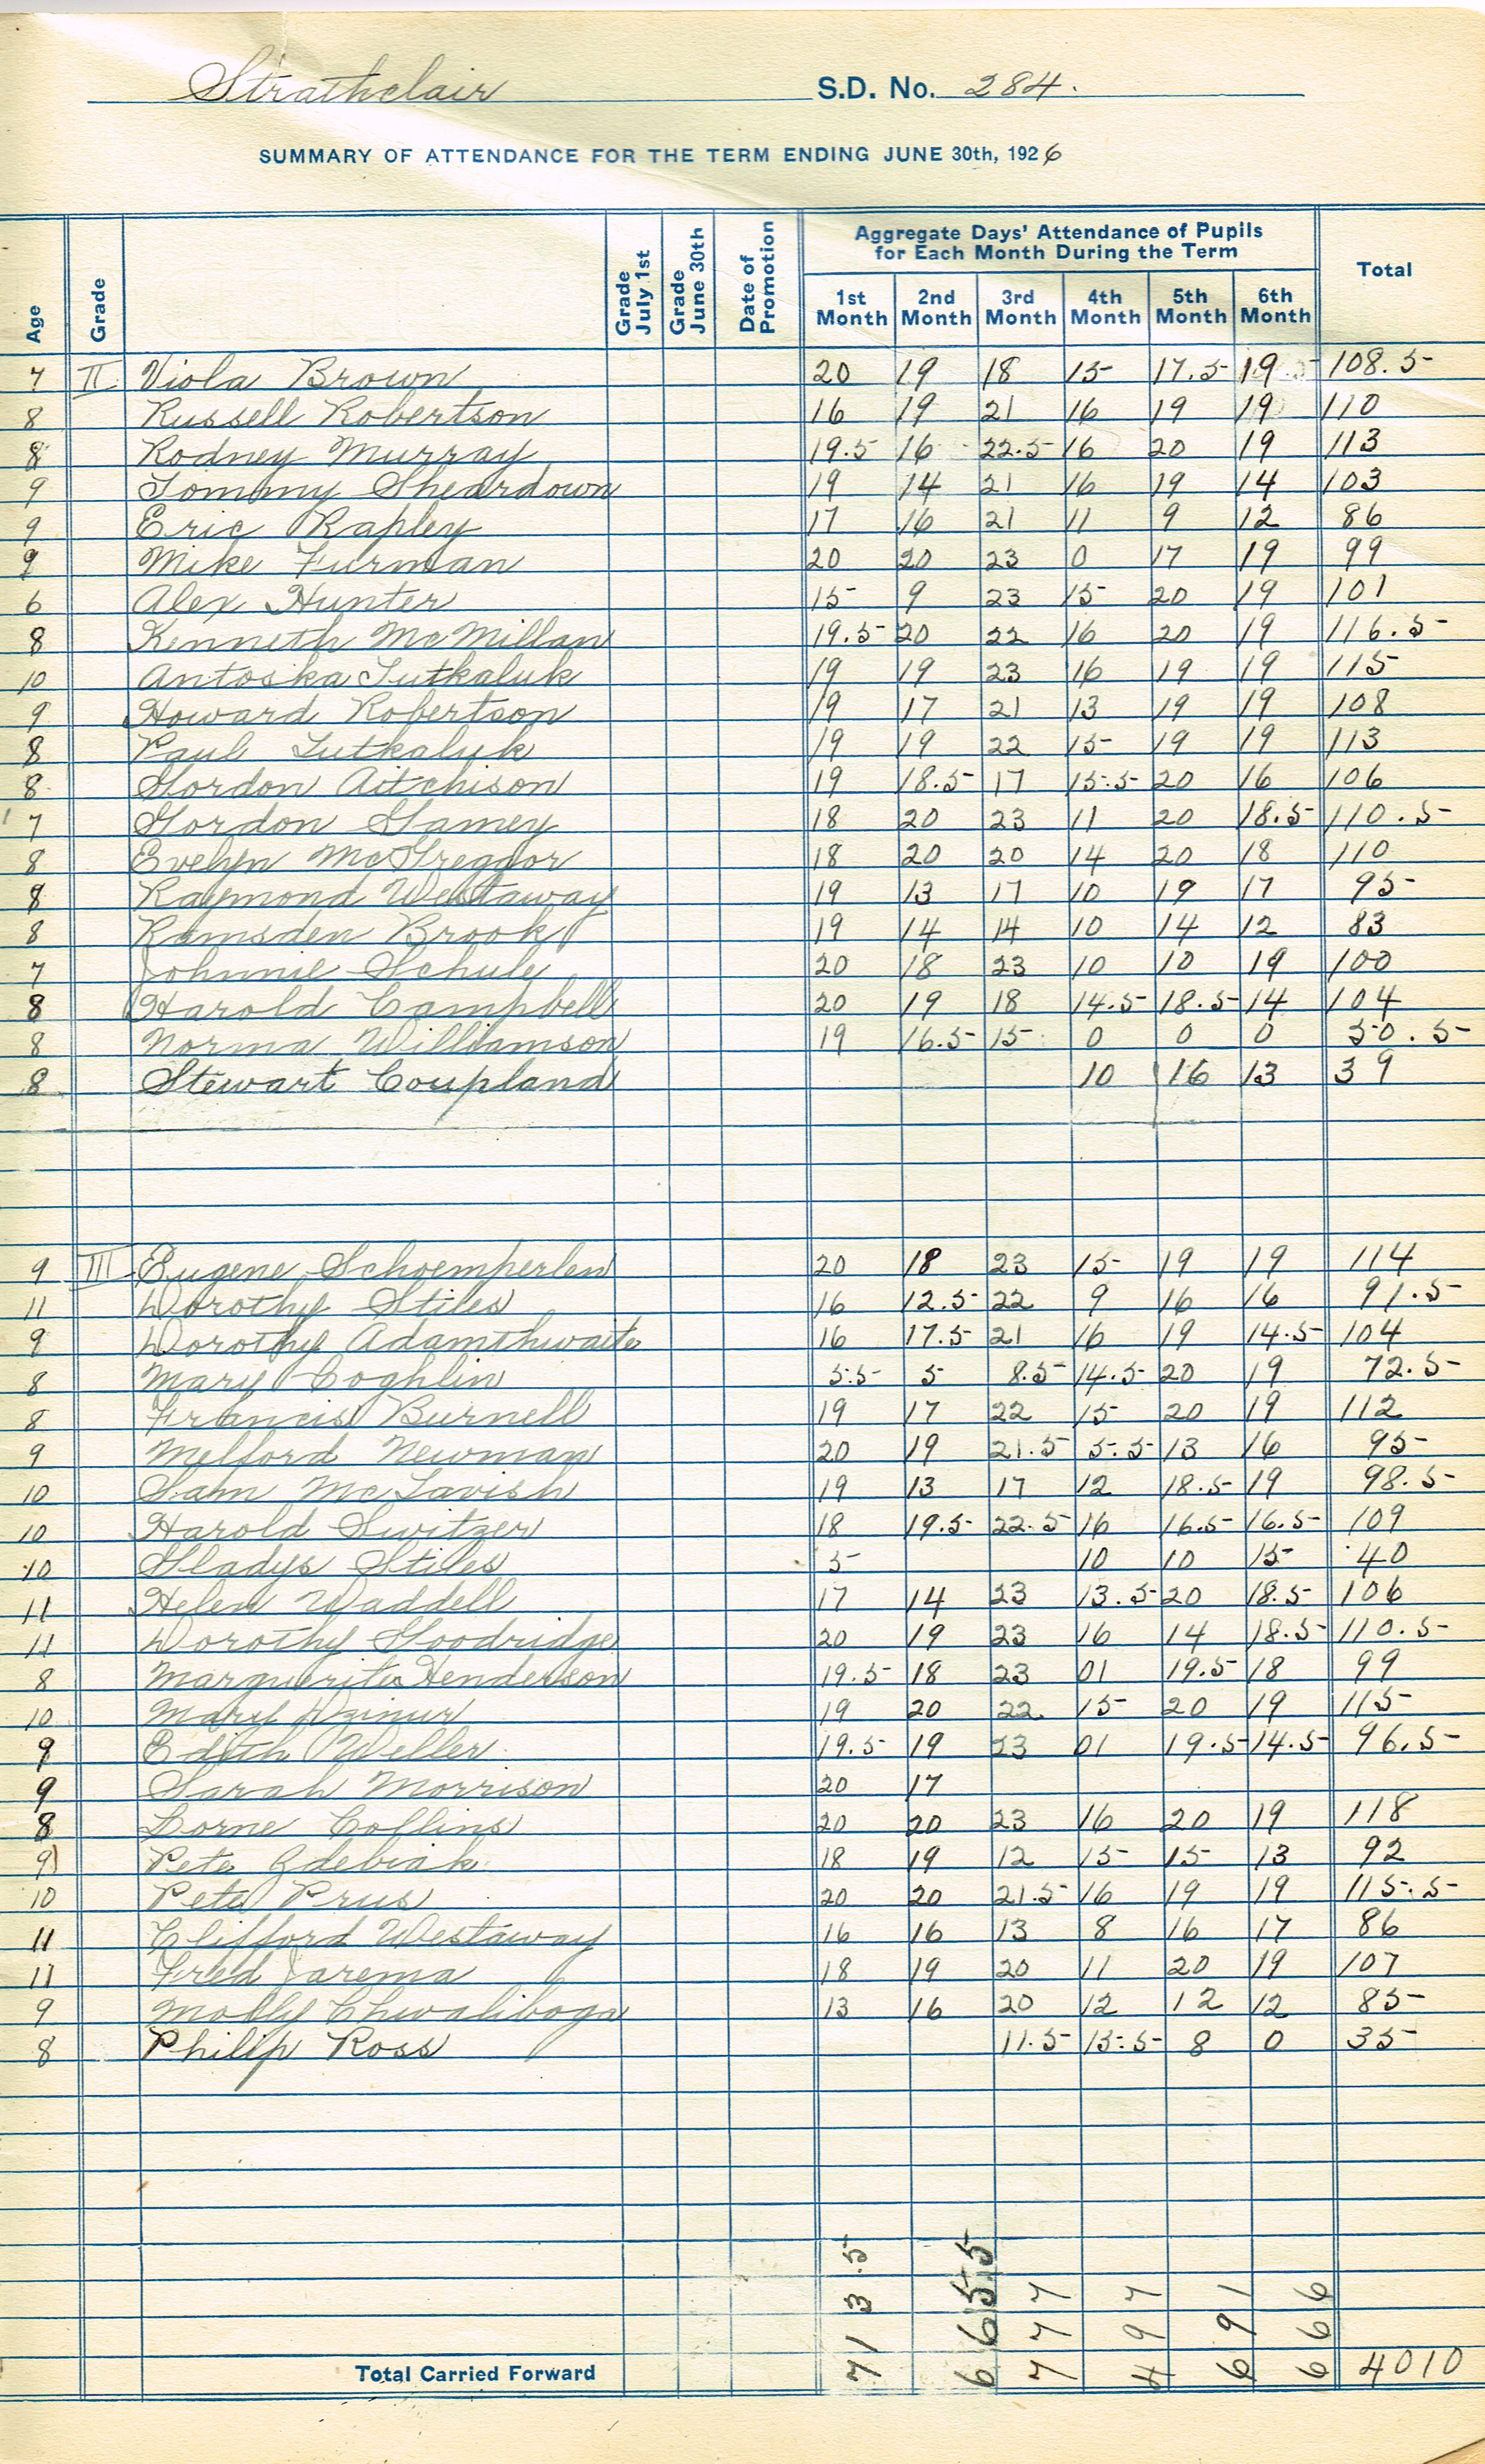 Strathclair S.D. No. 284.
SUMMARY OF ATTENDANCE FOR THE TERM ENDING JUNE 30th, 1926
Age Grade Grade July 1st Grade June 30th Date of Promotion Aggregate Days' Attendance of Pupils for Each Month During the Term Total
1st Month 2nd Month 3rd Month 4th Month 5th Month 6th Month
7 II Viola Brown 20 19 18 15 17.5 19 108.5
8 Russell Robertson 16 19 21 16 19 19 110
8 Rodney Murray 19.5 16 22.5 16 20 19 113
9 Tommy Sheardown 19 14 21 16 19 14 103
9 Eric Rapley 17 16 21 11 9 12 86
9 Mike Furman 20 20 23 0 17 19 99
6 Alex Hunter 15 9 23 15 20 19 101
8 Kenneth McMillan 19.5 20 22 16 20 19 116.5
10 Antoska Tutkaluk 19 19 23 16 19 19 115
9 Howard Robertson 19 17 21 13 19 19 108
8 Paul Tutkaluk 19 19 22 15 19 19 113
8 Gordon Aitchison 19 18.5 17 15.5 20 16 106
7 Gordon Gamey 18 20 23 11 20 18.5 110.5
8 Evelyn McGreggor 18 20 20 14 20 18 110
8 Raymond Westaway 19 13 17 10 19 17 95
8 Ramsden Brook 19 14 14 10 14 12 83
7 Johnnie Schule 20 18 23 10 10 19 100
8 Harold Campbell 20 19 18 14.5 18.5 14 104
8 Norma Williamson 19 16.5 15 0 0 0 50.5
8 Stewart Coupland 10 16 13 39
9 III Eugene Schoemperlen 20 18 23 15 19 19 114
11 Dorothy Stiles 16 12.5 22 9 16 16 91.5
9 Dorothy Adamthwaite 16 17.5 21 16 19 14.5 104
8 Mary Coghlin 5.5 5 8.5 14.5 20 19 72.5
8 Francis Burnell 19 17 22 15 20 19 112
9 Melford Newman 20 19 21.5 5.5 13 16 95
10 Sam McTavish 19 13 17 12 18.5 19 98.5
10 Harold Switzer 18 19.5 22.5 16 16.5 16.5 109
10 Gladys Stiles 5 10 10 15 40
11 Helen Waddell 17 14 23 13.5 20 18.5 106
11 Dorothy Goodridge 20 19 23 16 14 18.5 110.5
8 Marguerite Henderson 19.5 18 23 01 19.5 18 99
10 Mary 19 20 22 15 20 19 115
9 Edith Weller 19.5 19 23 01 19.5 14.5 96.5
9 Sarah Morrison 20 17
8 Lorne Collins 20 20 23 16 20 19 118
9 Pete Zdebiak 18 19 12 15 15 13 92
10 Pete Prus 20 20 21.5 16 19 19 115.5
11 Clifford Westaway 16 16 13 8 16 17 86
11 Fred Jarema 18 19 20 11 20 19 107
9 Molly Chwaliboga 13 16 20 12 12 12 85
8 Philip Ross 11.5 15.5 8 0 35
Total Carried Forward 713.5 665.5 777 497 691 666 4010